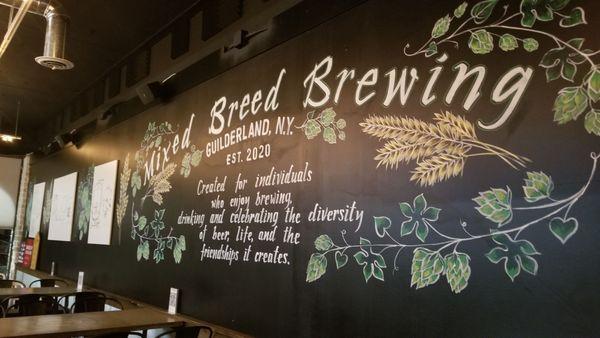 Mixed Breed Brewing
GUILDERLAND, N.Y.
EST. 2020
Created for individuals
who enjoy brewing,
drinking and celebrating the diversity
of beer, life, and the
friendships it creates.